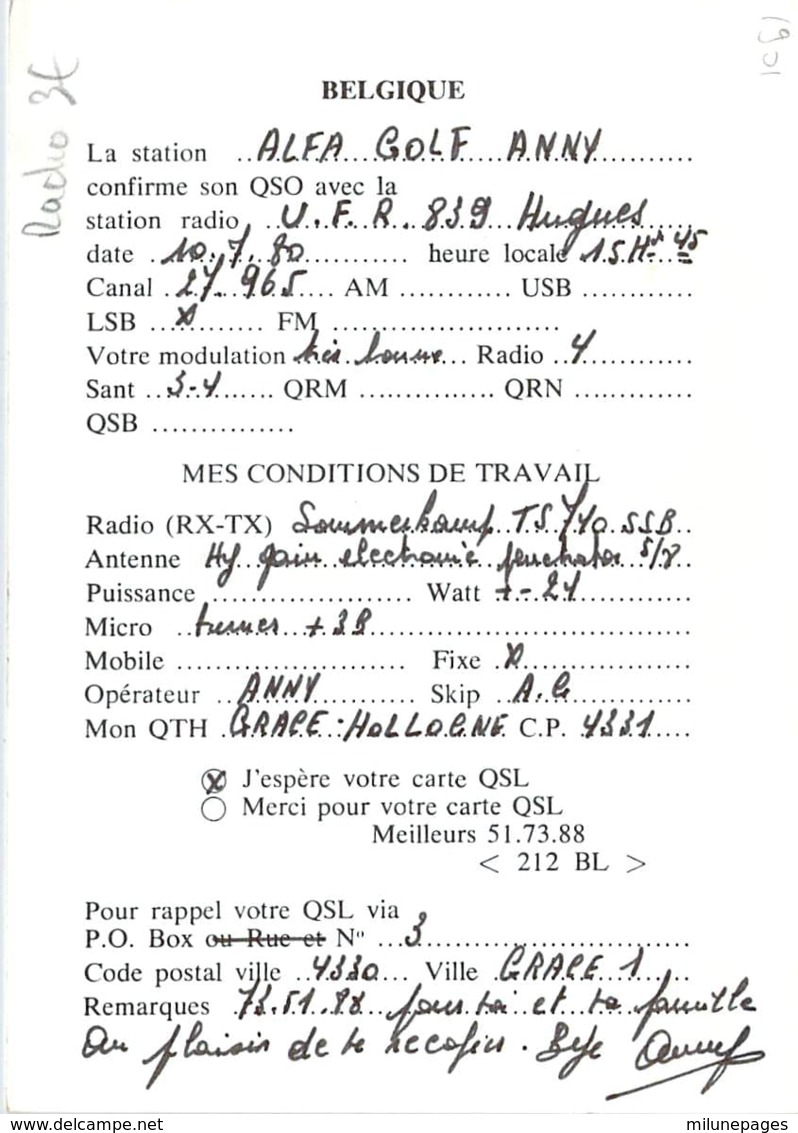 Radio 3€
BELGIQUE
La station ..ALFA....GOLF....ANNY............
confirme son QSO avec la
station radio ...U.F.R. 839 Hugues.....
date ..10..7..80............ heure locale .15.H 45
Canal .27..965.... AM ............ USB ............
LSB ...X......... FM .........................
Votre modulation très..bonne... Radio ..4............
Sant ..3-4....... QRM ............... QRN .............
QSB ...............
MES CONDITIONS DE TRAVAIL
Radio (RX-TX) Sommerkamp..TS 740 SSB..
Antenne Hy gain electronic penetrator 5/8.
Puissance ..................... Watt +-.24............
Micro ..turner..+3B..................................
Mobile ....................... Fixe .X.................
Opérateur ..ANNY............ Skip ..A.G.............
Mon QTH .GRACE-HOLLOGNE C.P. 4331....
X J'espère votre carte QSL
Merci pour votre carte QSL
Meilleurs 51.73.88
< 212 BL >
Pour rappel votre QSL via
P.O. Box ou Rue et N° ...3...........................
Code postal ville ..4330... Ville GRACE 1....
Remarques .73.51.88 pour toi et ta famille
Au plaisir de te recopier. Bye Anny
milunepages